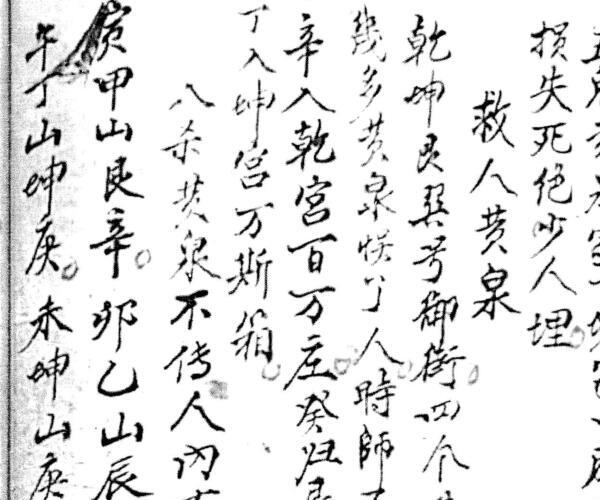 损失死绝少人埋
救人黄泉
乾坤艮巽号御街四个
几多黄泉误了人時師
辛入乾宫百万庄癸归艮
丁入坤宫万斯箱
八杀黄泉不傅人内
寅甲山艮辛卯乙山辰
午丁山坤庚未坤山庚